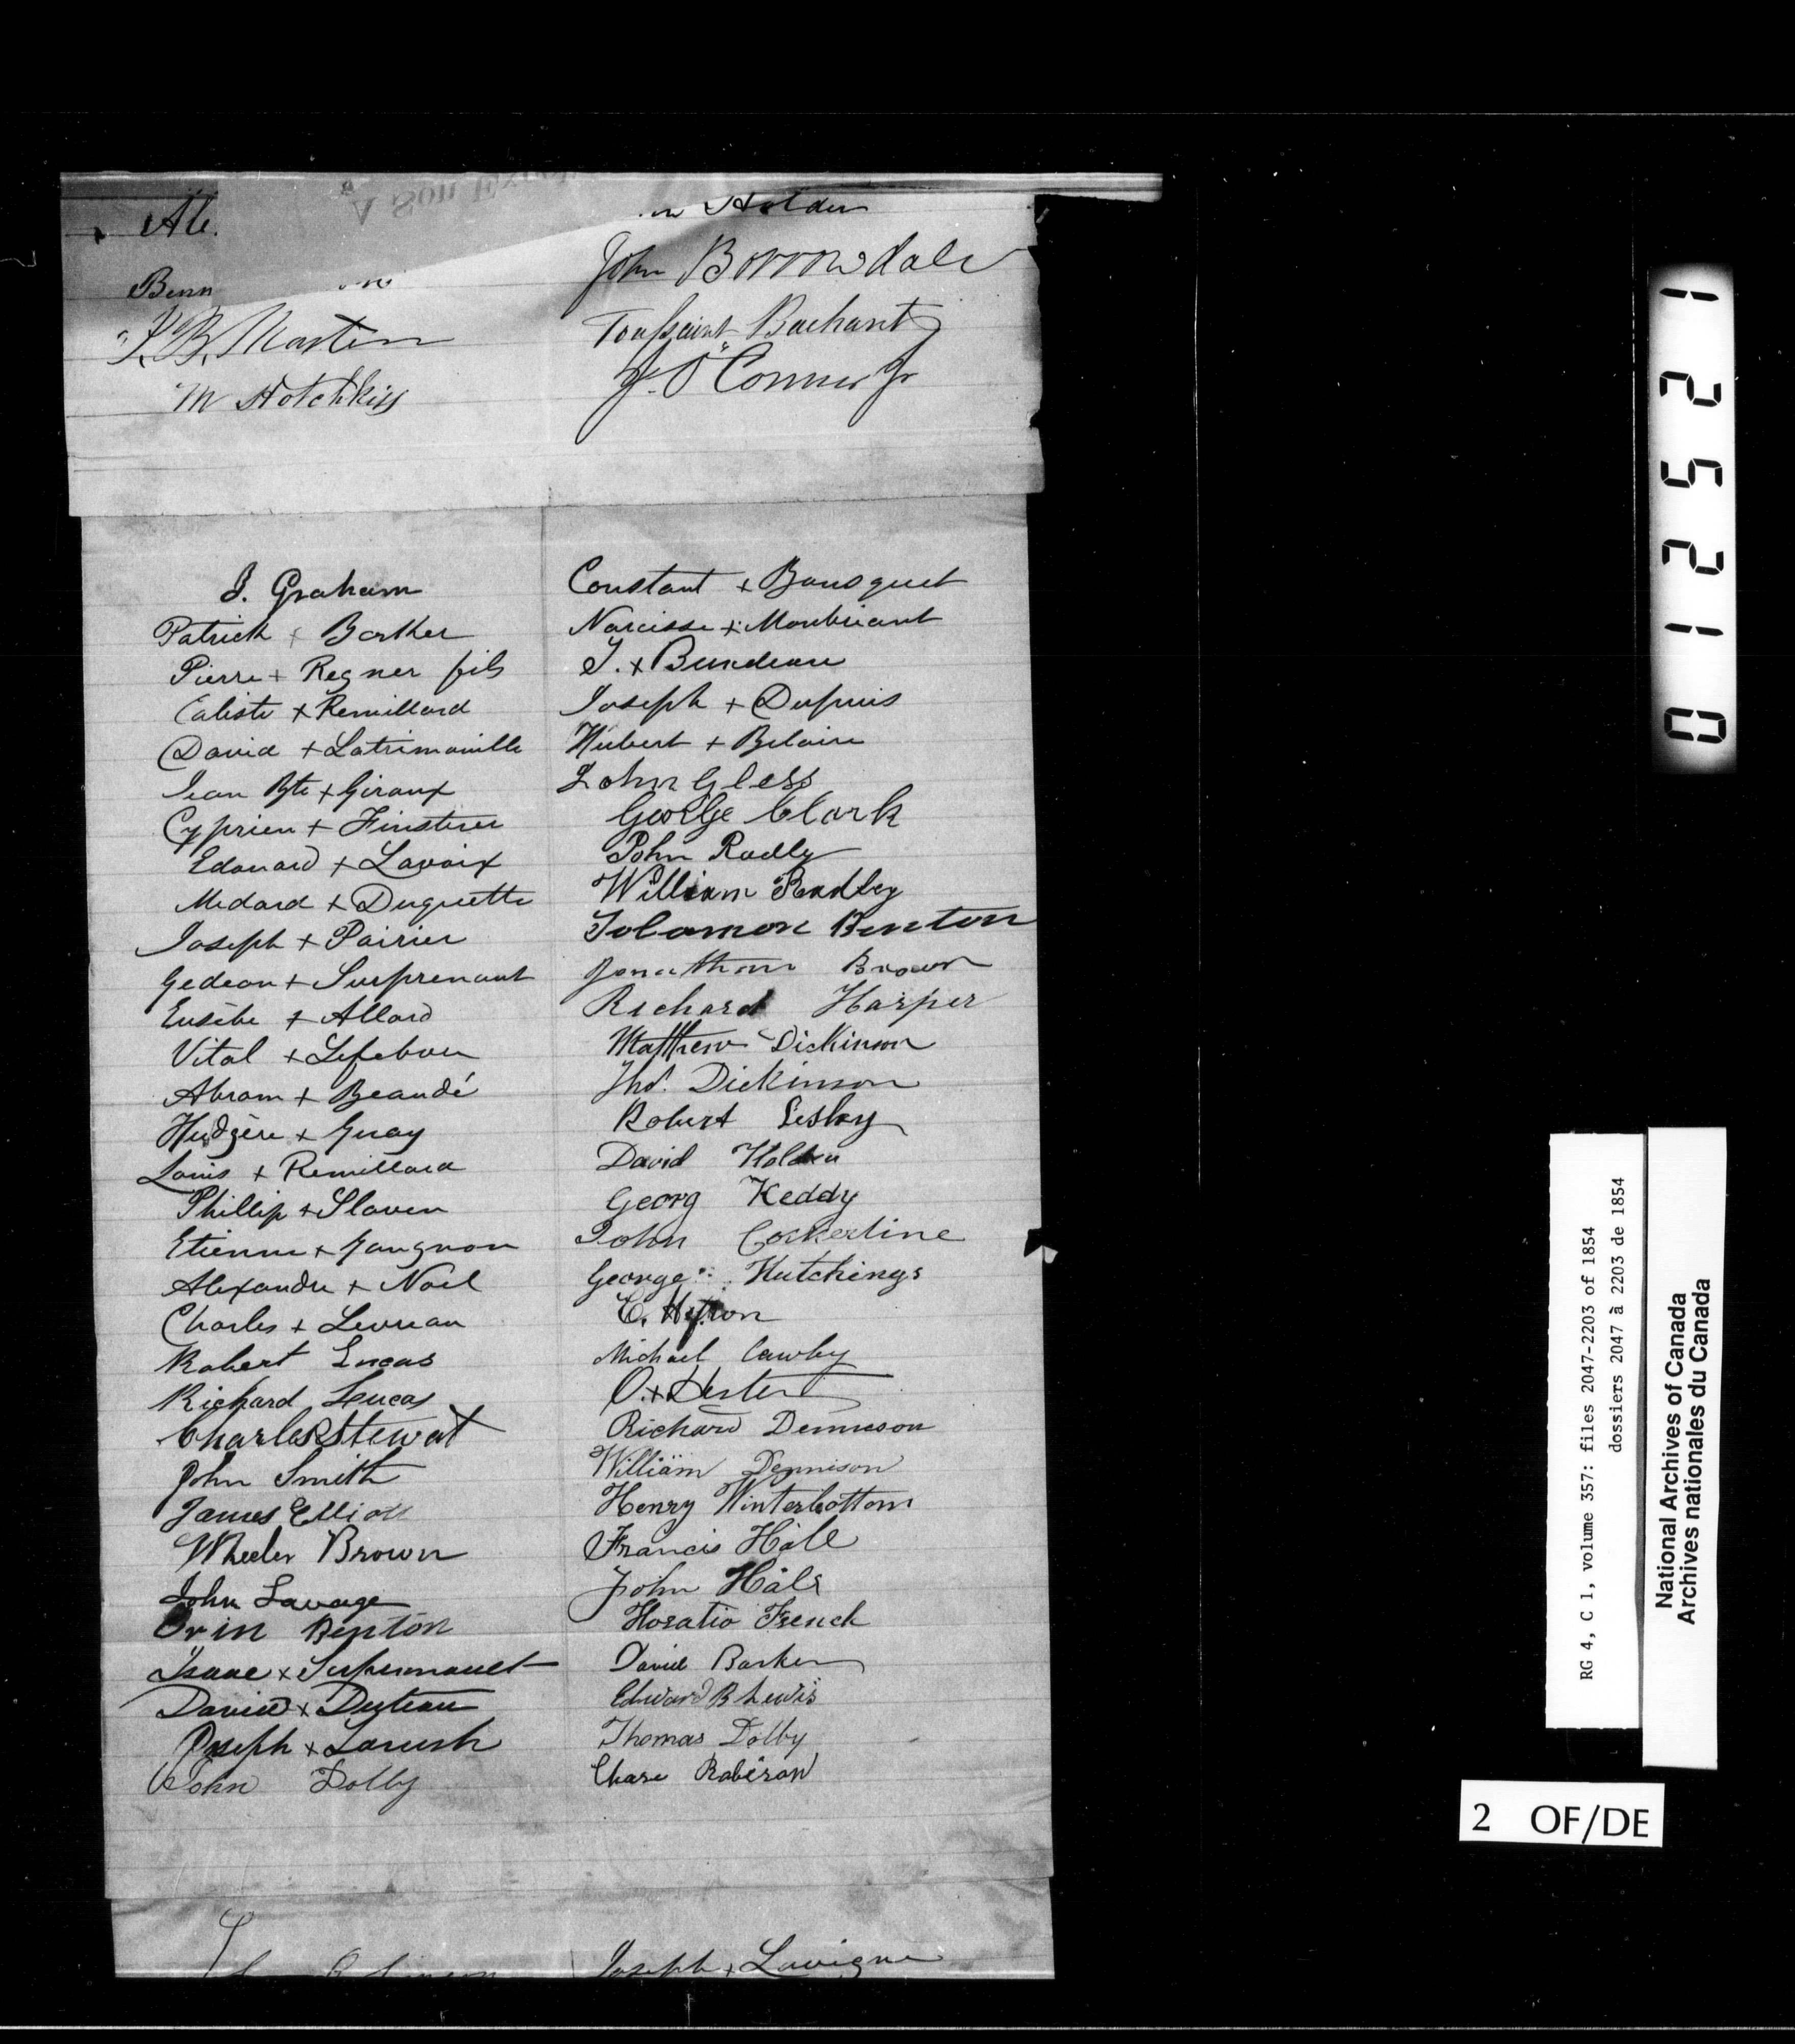 A Son Ex
Ale.
Holden
John Borrowdale
Benn
J. B. Martin
Toussaint Bachant
M Hotchkiss
J. O'Conner Jr
J. Graham
Patrick + Barker
Pierre + Regner fils
Caliste + Remillard
David + Latrimouille
Jean Bte + Giroux
Cyprien + Finsterer
Edouard + Lavoix
Medard + Duquette
Joseph + Pairier
Gedeon + Surprenant
Eusèbe + Allard
Vital + Lefebvre
Abram + Beaudé
Hudgère + Guay
Louis + Remillard
Phillip + Slaven
Etienne + Gaugnon
Alexandre + Noel
Charles + Levreau
Robert Lucas
Richard Lucas
Charles Stewat
John Smith
James Elliott
Wheeler Brown
John Savage
Orin Benton
Isaac + Surpernault
David + Duteau
Joseph + Laroush
John Dolby
Constant + Bousquet
Narcisse + Monbriant
J. +
Joseph + Dupuis
Hubert + Belaire
John Gless
GeorGe Clark
John Radly
William Radley
Solomon Benton
Jonathan Brown
Richard Harper
Matthew Dickinson
Thos. Dickinson
Robert Lesley
David Holden
Georg Keddy
John Cockerline
George Hutchings
C.
Michael Cawby
O. + Hester
Richard Dennison
William Dennison
Henry Winterbottom
Francis Hale
John Hale
Horatio French
David Barker
Edward B Lewis
Thomas Dolby
Chase Robison
Joseph + Lavigne
012521
RG 4, C 1, volume 357: files 2047-2203 of 1854
dossiers 2047 à 2203 de 1854
National Archives of Canada
Archives nationales du Canada
2 OF/DE